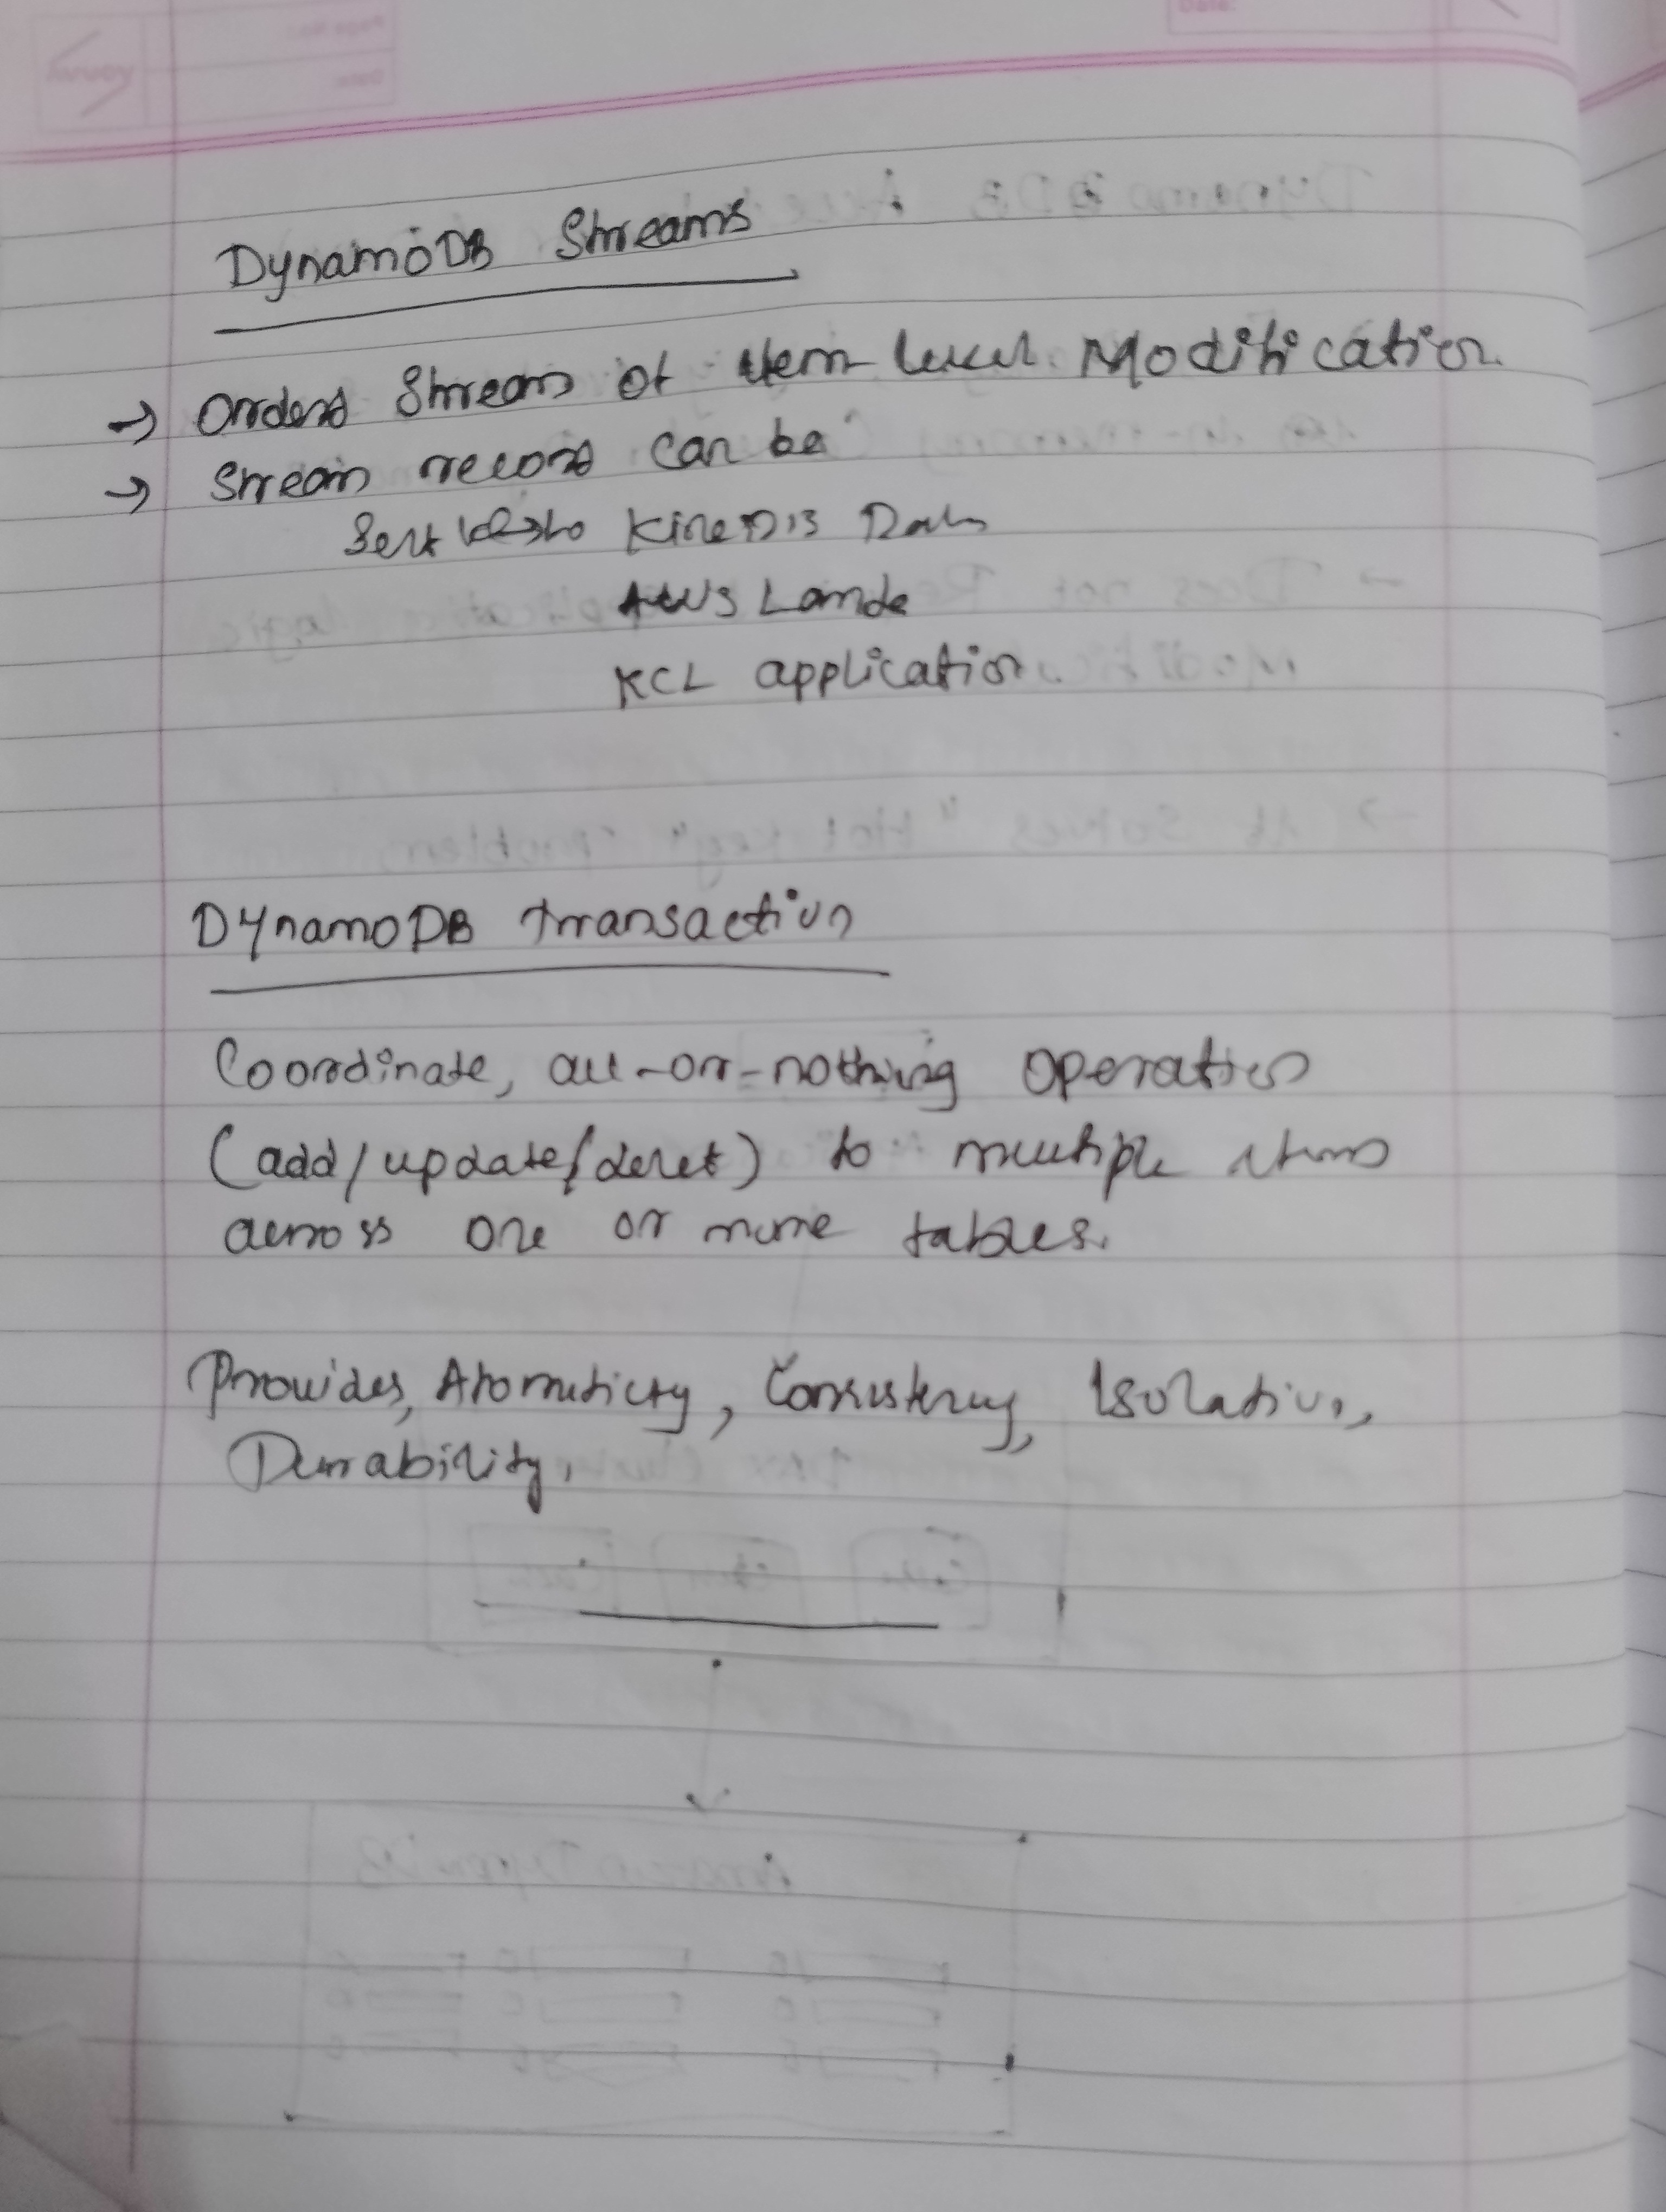 DynamoDB Streams
→ Orderd Stream of item level Modification.
→ Stream record can be
Sent to Kinesis Data
AWS Lamda
KCL application.
DynamoDB transaction
Coordinate, all-or-nothing operation
(add/update/delet) to multiple items
across one or more tables.
Provides, Atomicity, Consistency, Isolation,
Durability,